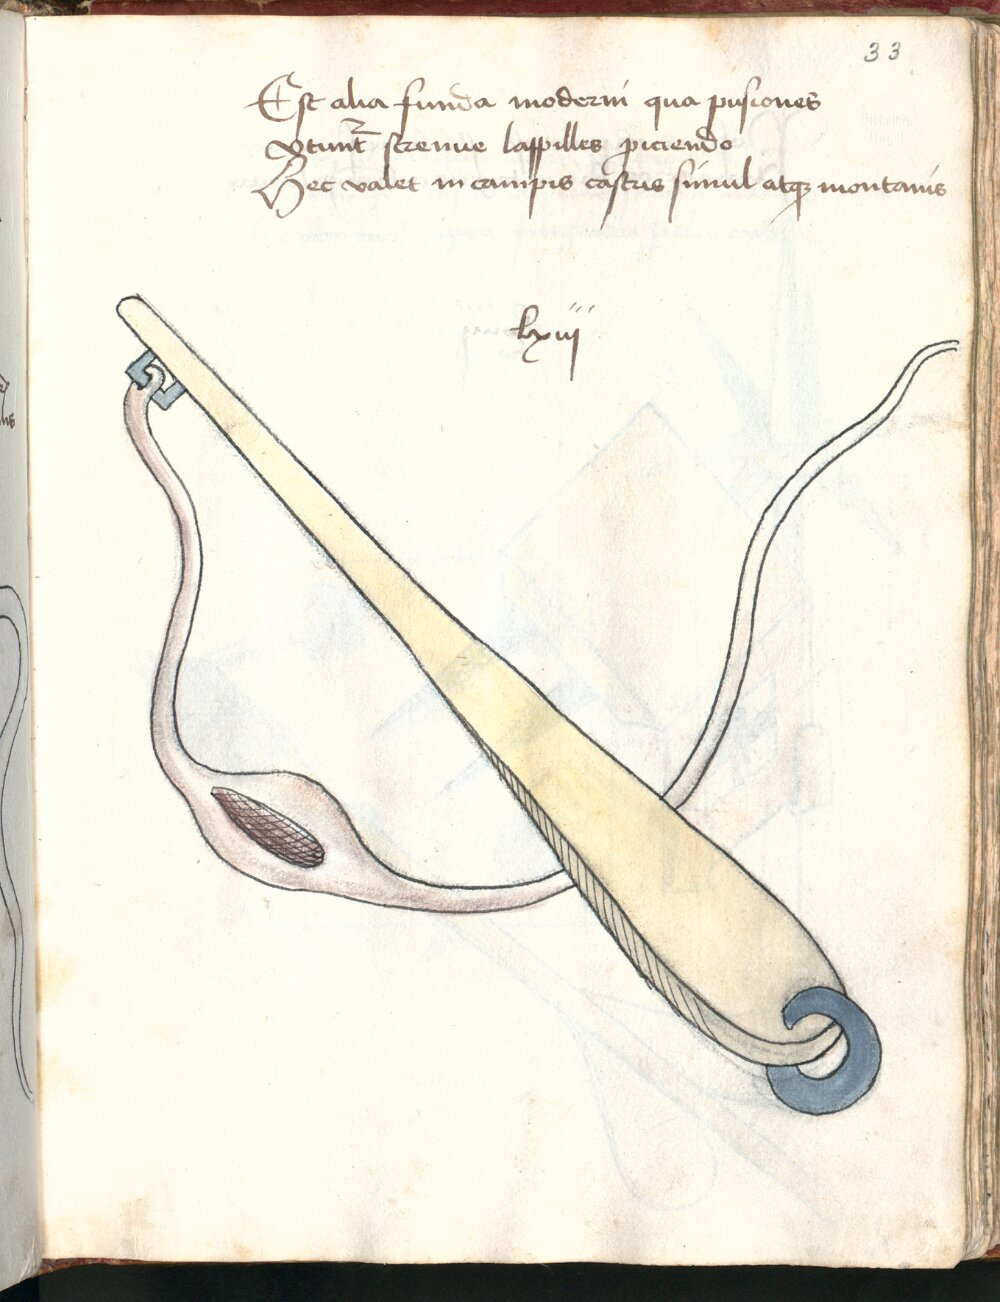 33
Est alia funda moderni qua pusiones
Vtunt̃ strenue lappilles ꝓiciendo
Hec valet in campis castris simul atqꝫ montanis
lxiij